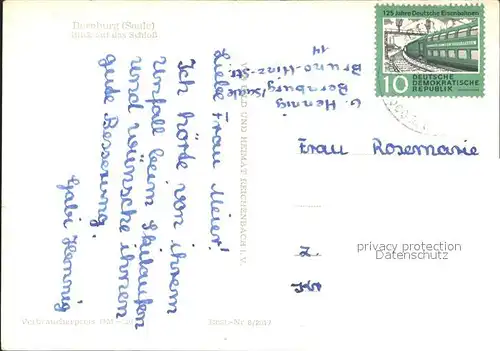 Bernburg (Saale)
Blick auf das Schloß
Liebe Frau Meier!
Ich hörte von ihrem
Unfall beim Skilaufen
und wünsche ihnen
gute Besserung.
Gabi Hennig
Verbraucherpreis
BILD UND HEIMAT REICHENBACH I. V.
G. Hennig
Bernburg/Saale
Bruno-Hinz-Str.
14
125 Jahre Deutsche Eisenbahnen
10 DEUTSCHE
DEMOKRATISCHE
REPUBLIK
Frau Rosemarie
Z.
privacy protection
Datenschutz